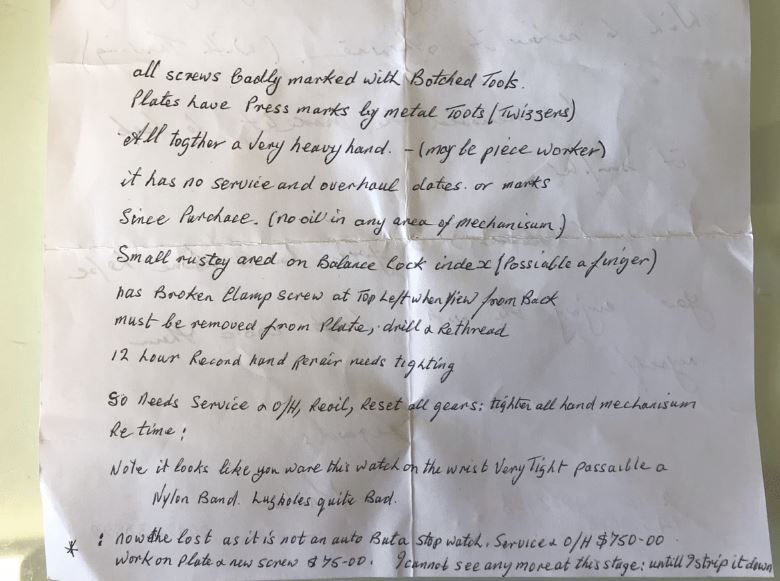 all screws badly marked with Botched Tools.
Plates have Press marks by metal Tools (Twizzens)
All togther a very heavy hand. - (may be piece worker)
it has no service and overhaul dates. or marks
Since Purchace. (no oil in any area of mechanisum)
Small rustey ared on Balance Cock index (Possiable a finger)
has Broken Clamp screw at Top Left when view from Back
must be removed from Plate, drill & Rethread
12 hour Record hand Perair needs tighting
So Needs Service & O/H, Reoil, Reset all gears: tighter all hand mechanisum
Re time:
Note it looks like you ware this watch on the wrist Very Tight passaible a
Nylon Band. Lugholes quite Bad.
* : now the Cost as it is not an auto But a Stop watch. Service & O/H $750-00
Work on Plate & new screw $75-00. I cannot see any more at this stage: untill I strip it down